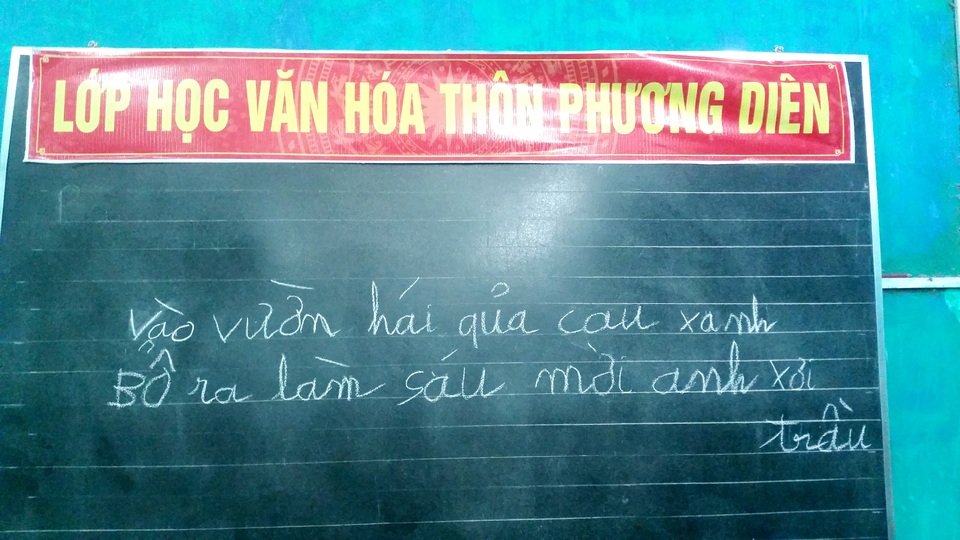 LỚP HỌC VĂN HÓA THÔN PHƯƠNG DIÊN
Vào vườn hái qủa cau xanh
BỔ ra làm sáu mời anh xơi
trầu